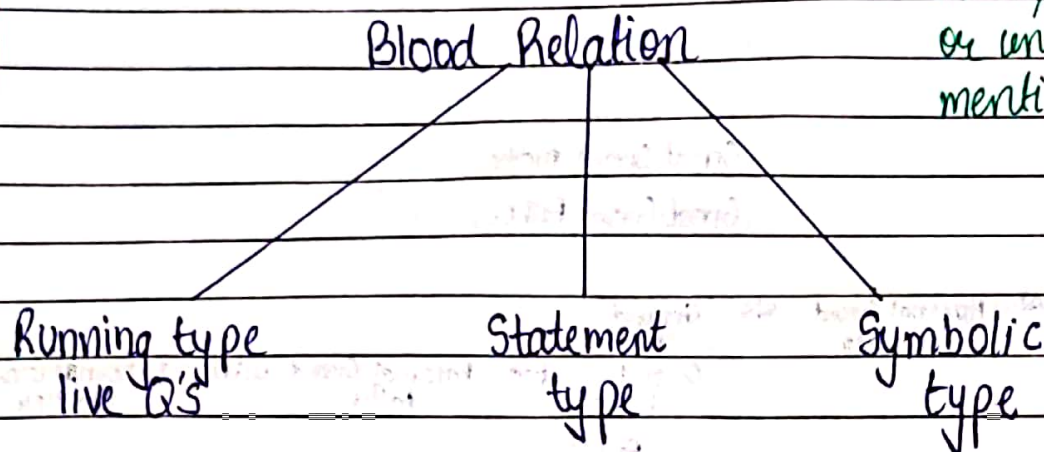 Blood Relation
or un
menti
Running type
live Q's
Statement
type
Symbolic
type